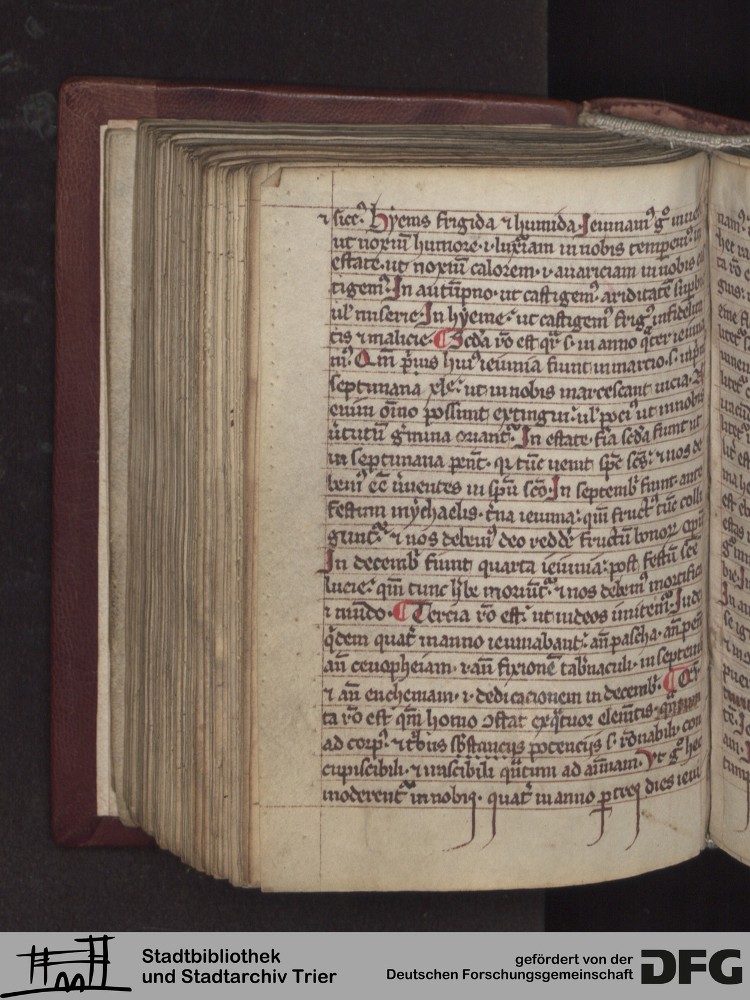 ⁊ sicc᷒. Hyems frigida ⁊ humida. Ieiunam᷒ gͦ
ut noxiū humorē .i. luxͥam in nobis temperem᷒ in
estate. ut noxiū calorem .i. auariciam in nobis
tigem᷒. In autūpno. ut castigem᷒ ariditatē supbie
ul' miserie. In hyeme. ut castigem᷒ frig᷒ infidelita
tis ⁊ malicie. ¶ Scd̄a rō est qr̄ s. in anno qͣter ieiuna
m᷒. Qm̄ p̄us hui᷒ ieiunia fiunt in marcio. s. in pͥma
septimana xl'e. ut in nobis marcescant uicia.
enim oīno possunt extingui. ul' poci᷒ ut in nobis
ūtutū gͥmina oriant᷒. In estate. fīa scd̄a fiunt ut
in septimana pent. qr tūc uenit spc̄ sc̄s. ⁊ nos de
bem᷒ eē ūuentes in spū sc̄o. In septemb᷒ fiunt ante
festum mychaelis. t̄na ieiunia. qm̄ fruct᷒ tūc colli
gunt᷒. ⁊ nos debem᷒ deo redde᷒ fructū bonoꝝ opū
In decemb᷒ fiunt quarta ieiunia. post festū sc̄e
lucie. qm̄ tunc h'be moriūt᷒. ⁊ nos debem᷒ mortifica
⁊ mūdo. ¶ Tercia rō est. ut iudeos imitem᷒. Iude
qͥdem quat᷒ in anno ieiunabant. an̄ pascha. an̄ pen
an̄ cenopheiam. ⁊ an̄ fixionē tab'naculi. in septem
⁊ an̄ encheniam .i. dedicacionem in decemb᷒. ¶ Qͣr
ta rō est qm̄ homo ɔstat ex qͣtuor elem̄tis. qͣntum
ad corp᷒. ⁊ tͥbus sb'stancijs potencijs s. rōnabili. con
cupiscibili. ⁊ irascibili qͣntum ad aīmam. Vt gͦ hec
moderent᷒ in nobis. quat᷒ in anno ꝑ tres dies ieiu
Stadtbibliothek
und Stadtarchiv Trier
gefördert von der
Deutschen Forschungsgemeinschaft
DFG